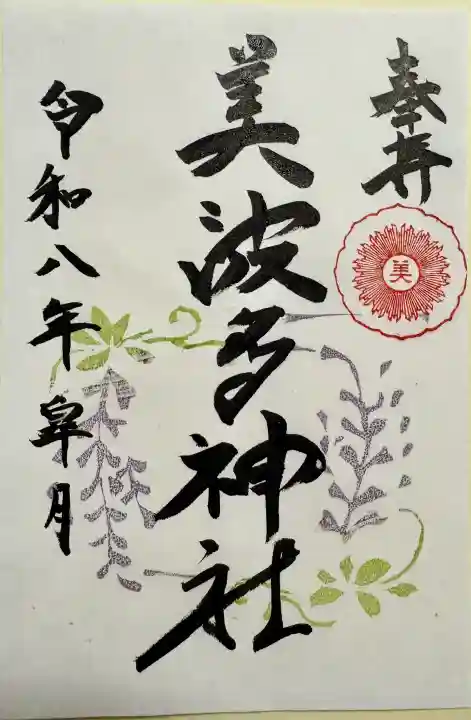 奉拝
美
美波多神社
令和八年皐月